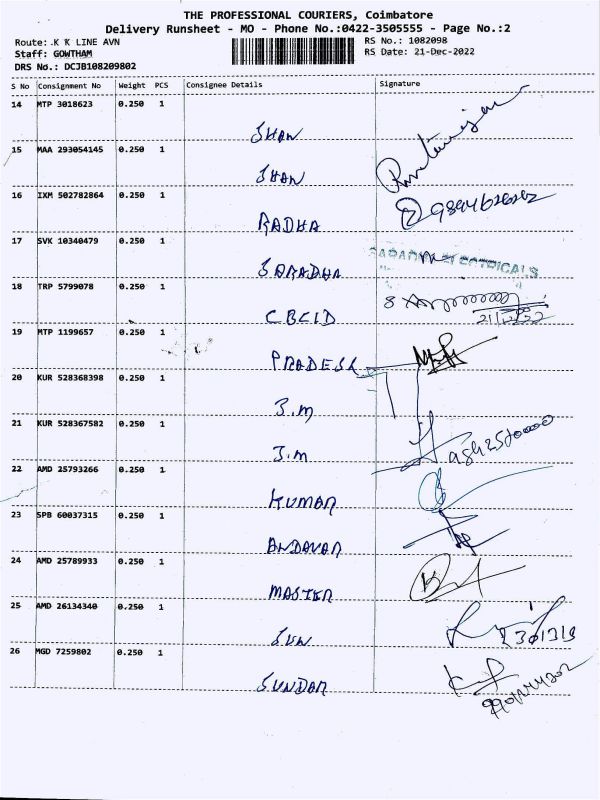 THE PROFESSIONAL COURIERS, Coimbatore
Delivery Runsheet - MO - Phone No.:0422-3505555 - Page No.:2
Route: K K LINE AVN
RS No.: 1082098
Staff: GOWTHAM
RS Date: 21-Dec-2022
DRS No.: DCJB108209802
S No Consignment No Weight PCS Consignee Details Signature
14 MTP 3018623 0.250 1
SHAN
15 MAA 293054145 0.250 1
SHAN
16 IXM 502782864 0.250 1
RADHA
17 SVK 10340479 0.250 1
SARADHA
18 TRP 5799078 0.250 1
CBCID
21/12/22
19 MTP 1199657 0.250 1
PRADESH
20 KUR 528368398 0.250 1
J.M
21 KUR 528367582 0.250 1
J.M
22 AMD 25793266 0.250 1
KUMAR
23 SPB 60037315 0.250 1
ANDAVAR
24 AMD 25789933 0.250 1
MASTER
25 AMD 26134340 0.250 1
SUN
26 MGD 7259802 0.250 1
SUNDAR